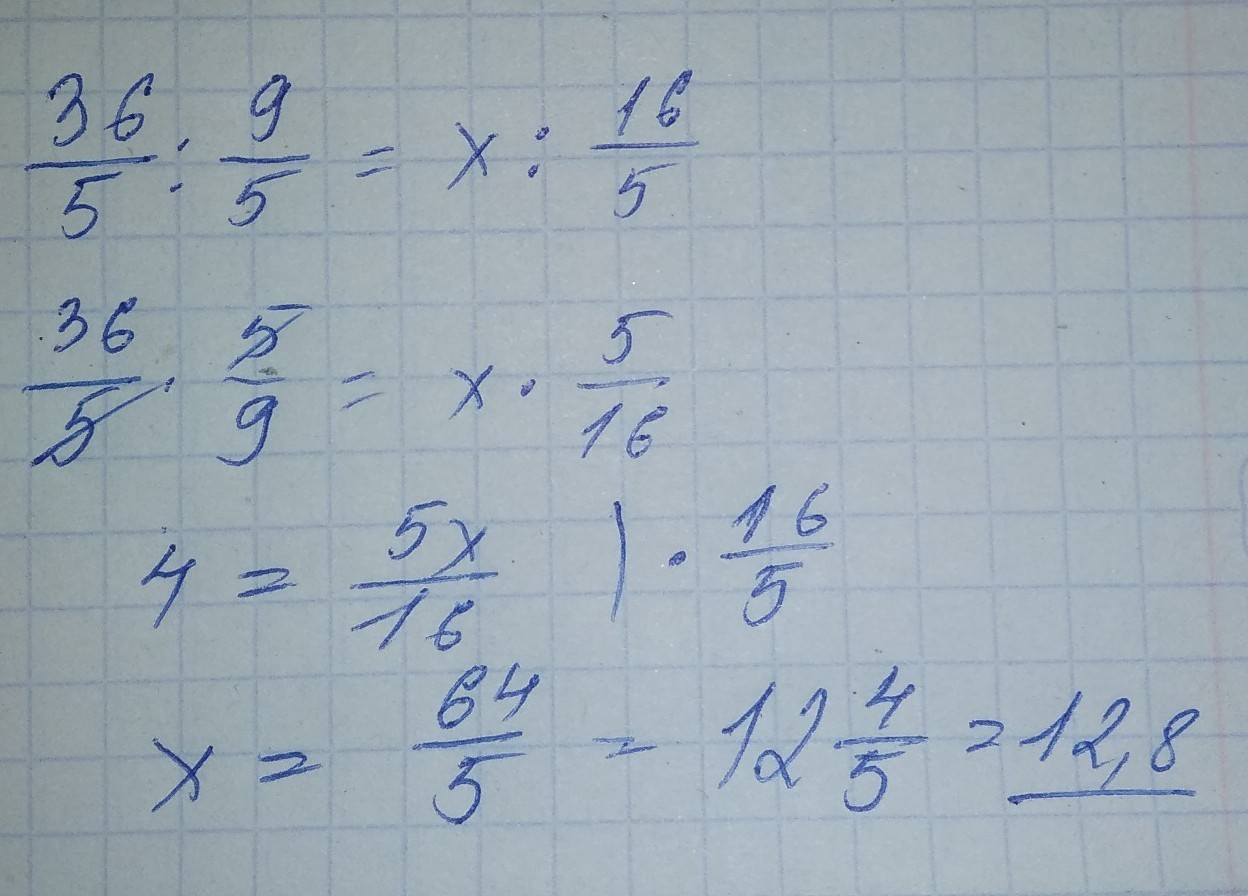 36/5 : 9/5 = x : 16/5
36/5 · 5/9 = x · 5/16
4 = 5x/16 | · 16/5
x = 64/5 = 12 4/5 = 12,8